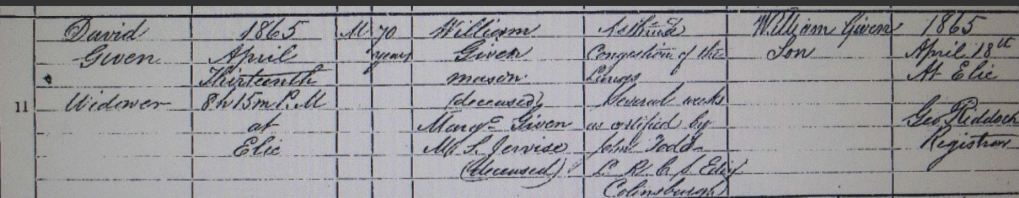 11
David
Given
Widower
1865
April
Thirteenth
8h 15m P.M
at
Elie
M
70
years
William
Given
mason
(deceased)
Margt Given
M. S. Jervise
(deceased)
Asthma
Congestion of the
Lungs
Several weeks
as certified by
John Todd
L. R. C. S. Edin
Colinsburgh
William Given
Son
1865
April 18th
At Elie
Geo. Riddoch
Registrar